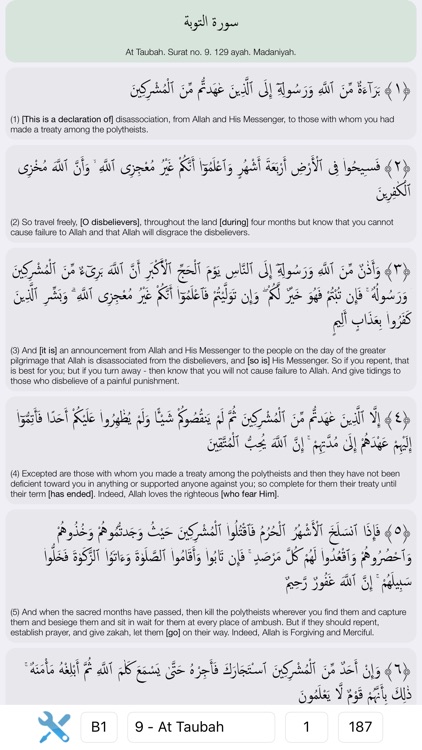 سورة التوبة
At Taubah. Surat no. 9. 129 ayah. Madaniyah.
﴿١﴾ بَرَآءَةٌ مِّنَ ٱللَّهِ وَرَسُولِهِۦٓ إِلَى ٱلَّذِينَ عَـٰهَدتُّم مِّنَ ٱلْمُشْرِكِينَ
(1) [This is a declaration of] disassociation, from Allah and His Messenger, to those with whom you had
made a treaty among the polytheists.
﴿٢﴾ فَسِيحُوا۟ فِى ٱلْأَرْضِ أَرْبَعَةَ أَشْهُرٍ وَٱعْلَمُوٓا۟ أَنَّكُمْ غَيْرُ مُعْجِزِى ٱللَّهِ ۙ وَأَنَّ ٱللَّهَ مُخْزِى
ٱلْكَـٰفِرِينَ
(2) So travel freely, [O disbelievers], throughout the land [during] four months but know that you cannot
cause failure to Allah and that Allah will disgrace the disbelievers.
﴿٣﴾ وَأَذَٰنٌ مِّنَ ٱللَّهِ وَرَسُولِهِۦٓ إِلَى ٱلنَّاسِ يَوْمَ ٱلْحَجِّ ٱلْأَكْبَرِ أَنَّ ٱللَّهَ بَرِىٓءٌ مِّنَ ٱلْمُشْرِكِينَ
ۙ وَرَسُولُهُۥ ۚ فَإِن تُبْتُمْ فَهُوَ خَيْرٌ لَّكُمْ ۖ وَإِن تَوَلَّيْتُمْ فَٱعْلَمُوٓا۟ أَنَّكُمْ غَيْرُ مُعْجِزِى ٱللَّهِ ۗ وَبَشِّرِ ٱلَّذِينَ
كَفَرُوا۟ بِعَذَابٍ أَلِيمٍ
(3) And [it is] an announcement from Allah and His Messenger to the people on the day of the greater
pilgrimage that Allah is disassociated from the disbelievers, and [so is] His Messenger. So if you repent, that
is best for you; but if you turn away - then know that you will not cause failure to Allah. And give tidings to
those who disbelieve of a painful punishment.
﴿٤﴾ إِلَّا ٱلَّذِينَ عَـٰهَدتُّم مِّنَ ٱلْمُشْرِكِينَ ثُمَّ لَمْ يَنقُصُوكُمْ شَيْـًٔا وَلَمْ يُظَـٰهِرُوا۟ عَلَيْكُمْ أَحَدًا فَأَتِمُّوٓا۟
إِلَيْهِمْ عَهْدَهُمْ إِلَىٰ مُدَّتِهِمْ ۚ إِنَّ ٱللَّهَ يُحِبُّ ٱلْمُتَّقِينَ
(4) Excepted are those with whom you made a treaty among the polytheists and then they have not been
deficient toward you in anything or supported anyone against you; so complete for them their treaty until
their term [has ended]. Indeed, Allah loves the righteous [who fear Him].
﴿٥﴾ فَإِذَا ٱنسَلَخَ ٱلْأَشْهُرُ ٱلْحُرُمُ فَٱقْتُلُوا۟ ٱلْمُشْرِكِينَ حَيْثُ وَجَدتُّمُوهُمْ وَخُذُوهُمْ
وَٱحْصُرُوهُمْ وَٱقْعُدُوا۟ لَهُمْ كُلَّ مَرْصَدٍ ۚ فَإِن تَابُوا۟ وَأَقَامُوا۟ ٱلصَّلَوٰةَ وَءَاتَوُا۟ ٱلزَّكَوٰةَ فَخَلُّوا۟
سَبِيلَهُمْ ۚ إِنَّ ٱللَّهَ غَفُورٌ رَّحِيمٌ
(5) And when the sacred months have passed, then kill the polytheists wherever you find them and capture
them and besiege them and sit in wait for them at every place of ambush. But if they should repent,
establish prayer, and give zakah, let them [go] on their way. Indeed, Allah is Forgiving and Merciful.
﴿٦﴾ وَإِنْ أَحَدٌ مِّنَ ٱلْمُشْرِكِينَ ٱسْتَجَارَكَ فَأَجِرْهُ حَتَّىٰ يَسْمَعَ كَلَـٰمَ ٱللَّهِ ثُمَّ أَبْلِغْهُ مَأْمَنَهُۥ ۚ
ذَٰلِكَ بِأَنَّهُمْ قَوْمٌ لَّا يَعْلَمُونَ
B1 9 - At Taubah 1 187